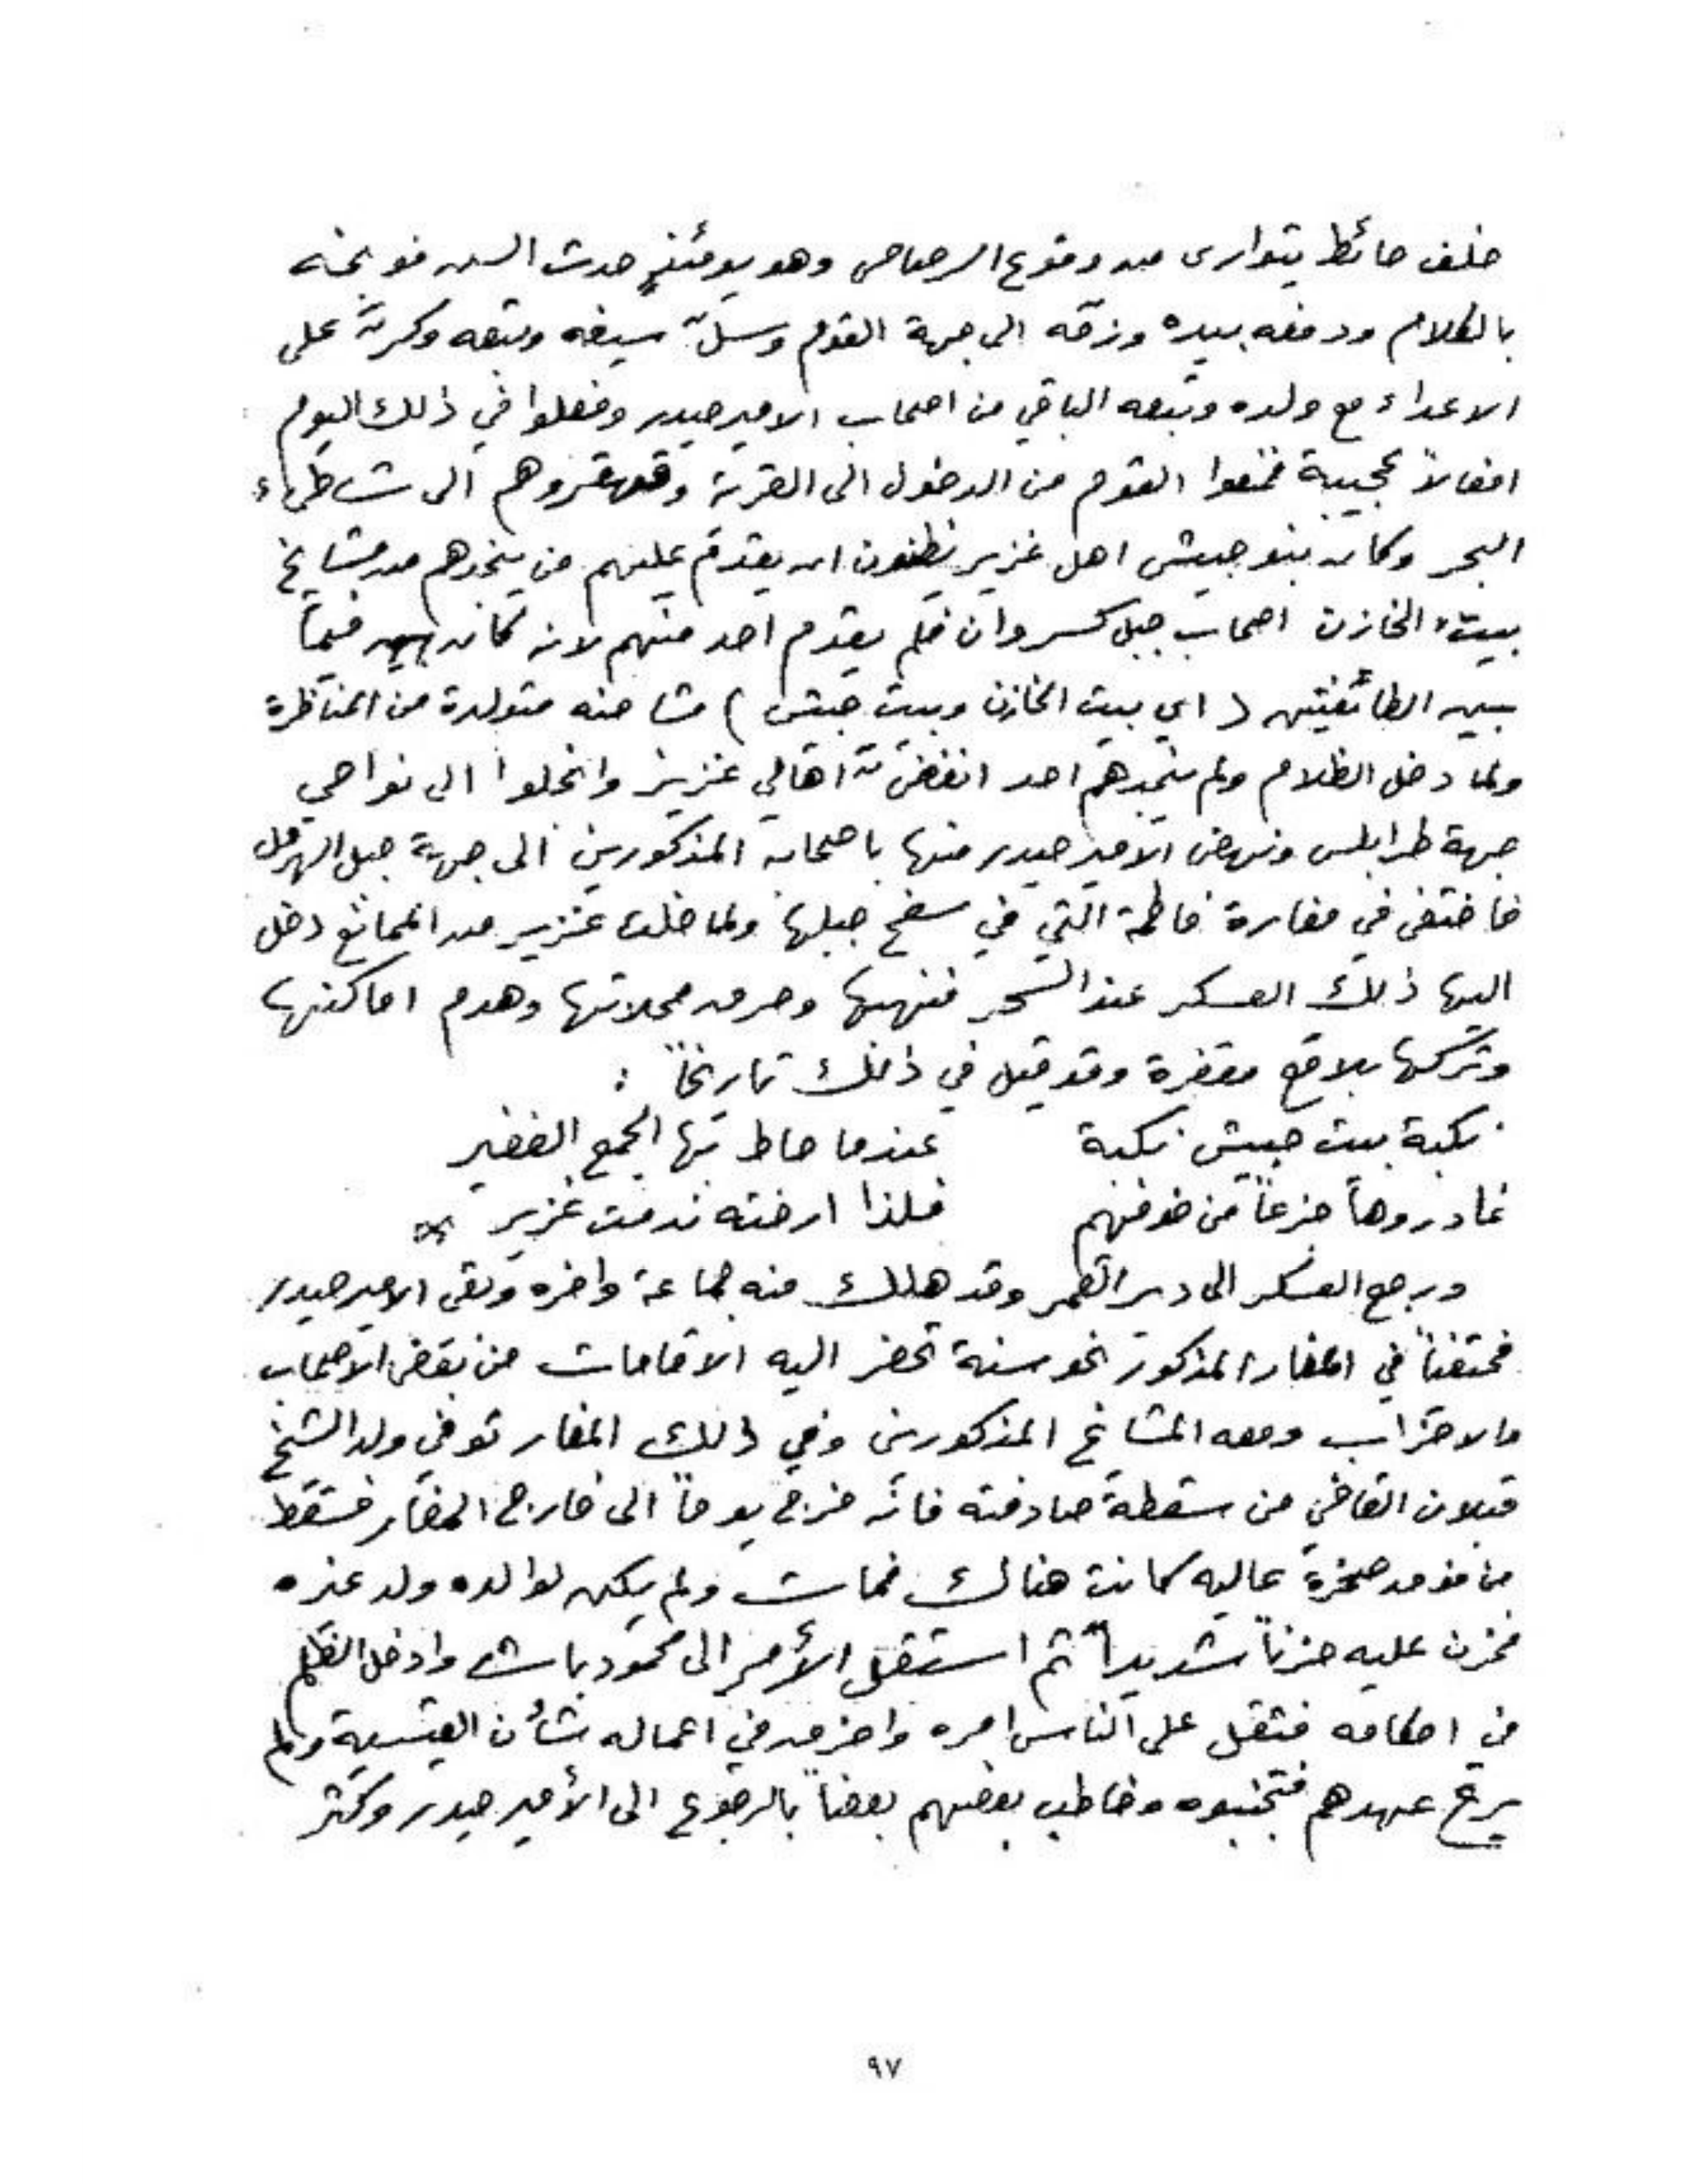 خلف حائط يتوارى من وقوع الرصاص وهو يومئذٍ حدث السن فوبخه
بالكلام ودفعه بيده وزقه الى جهة القوم وسلّ سيفه وتبعه وكرّ على
الاعداء مع ولده وتبعه الباقي من اصحاب الامير حيدر وفعلوا في ذلك اليوم
افعالاً عجيبة فمنعوا القوم من الدخول الى القرية وقهقروهم الى شاطىء
البحر وكان بنو حبيش اهل غزير يظنون ان يقدم عليهم من ينجدهم من مشايخ
بيت الخازن اصحاب جبل كسروان فلم يقدم احد منهم لانه كان فيما
بين الطائفتين ( اي بيت الخازن وبيت حبيش ) مشاحنه متولدة من المناظرة
ولما دخل الظلام ولم ينجدهم احد انفضّت اهالي غزير وانحلوا الى نواحي
جهة طرابلس ونهض الامير حيدر منها باصحابه المذكورين الى جهة جبل الهرمل
فاختفى في مغارة فاطمة التي في سفح جبلها ولما خلت غزير من الممانع دخل
اليها ذلك العسكر عند السحر فنهبها وحرق محلاتها وهدم اماكنها
وتركها بلاقع مقفرة وقد قيل في ذلك تاريخاً :
نكبة بيت حبيش نكبة عندما حاط بها الجمع الغفير
غادروها جزعاً من خوفهم فلذا ارخته ندمت غزير *
ورجع العسكر الى دير القمر وقد هلك منه جماعة وافره وبقي الامير حيدر
مختفياً في المغار المذكور نحو سنة تحضر اليه الاقامات من بعض الاصحاب
والاحزاب ومعه المشايخ المذكورين وفي ذلك المغار توفي ولد الشيخ
قبلان القاضي من سقطة صادفته فانه خرج يوماً الى خارج المغار فسقط
من فوق صخرة عاليه كانت هناك فمات ولم يكن لوالده ولد غيره
فحزن عليه حزناً شديداً ثم استقل الأمر الى محمود باشا وادخل الظلم
في احكامه فثقل على الناس امره واخرق في اعماله بشأن القيسية ولم
يرع عهدهم فتجنبوه وخاطب بعضهم بعضاً بالرجوع الى الأمير حيدر وكثر
٩٧